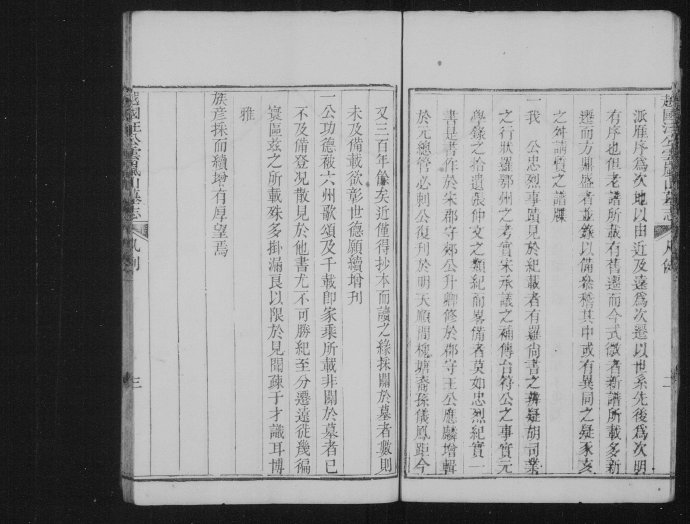 越國汪公雲嵐山墓志 凡例 二
派雁序爲次地以由近及遠爲次遷以世系先後爲次明
有序也但老譜所載有舊遷而今式微者新譜所載多新
遷而方興盛者並錄以備叅稽其中或有異同之疑豕亥
之舛請質之譜牒
一我 公忠烈事蹟見於紀載者有羅尙書之辨疑胡司業
之行狀羅鄂州之考實宋承議之補傳台符公之事實元
學錄之拾遺張仲文之類紀而畧備者莫如忠烈紀實一
書是書作於宋郡守郊公升卿修於郡守王公應麟增輯
於元總管必刺公復刊於明天順間槐塘裔孫儀鳳距今
又三百年餘矣近僅得抄本而讀之緣採關於墓者數則
未及備載欲彰世德願續增刊
一公功德被六州歌頌及千載即家乘所載非關於墓者已
不及備登况散見於他書尤不可勝紀至分遷遠徙幾徧
寰區玆之所載殊多掛漏良以限於見聞疎于才識耳博
雅
族彦採而續增有厚望焉
越國汪公雲嵐山墓志 凡例 三